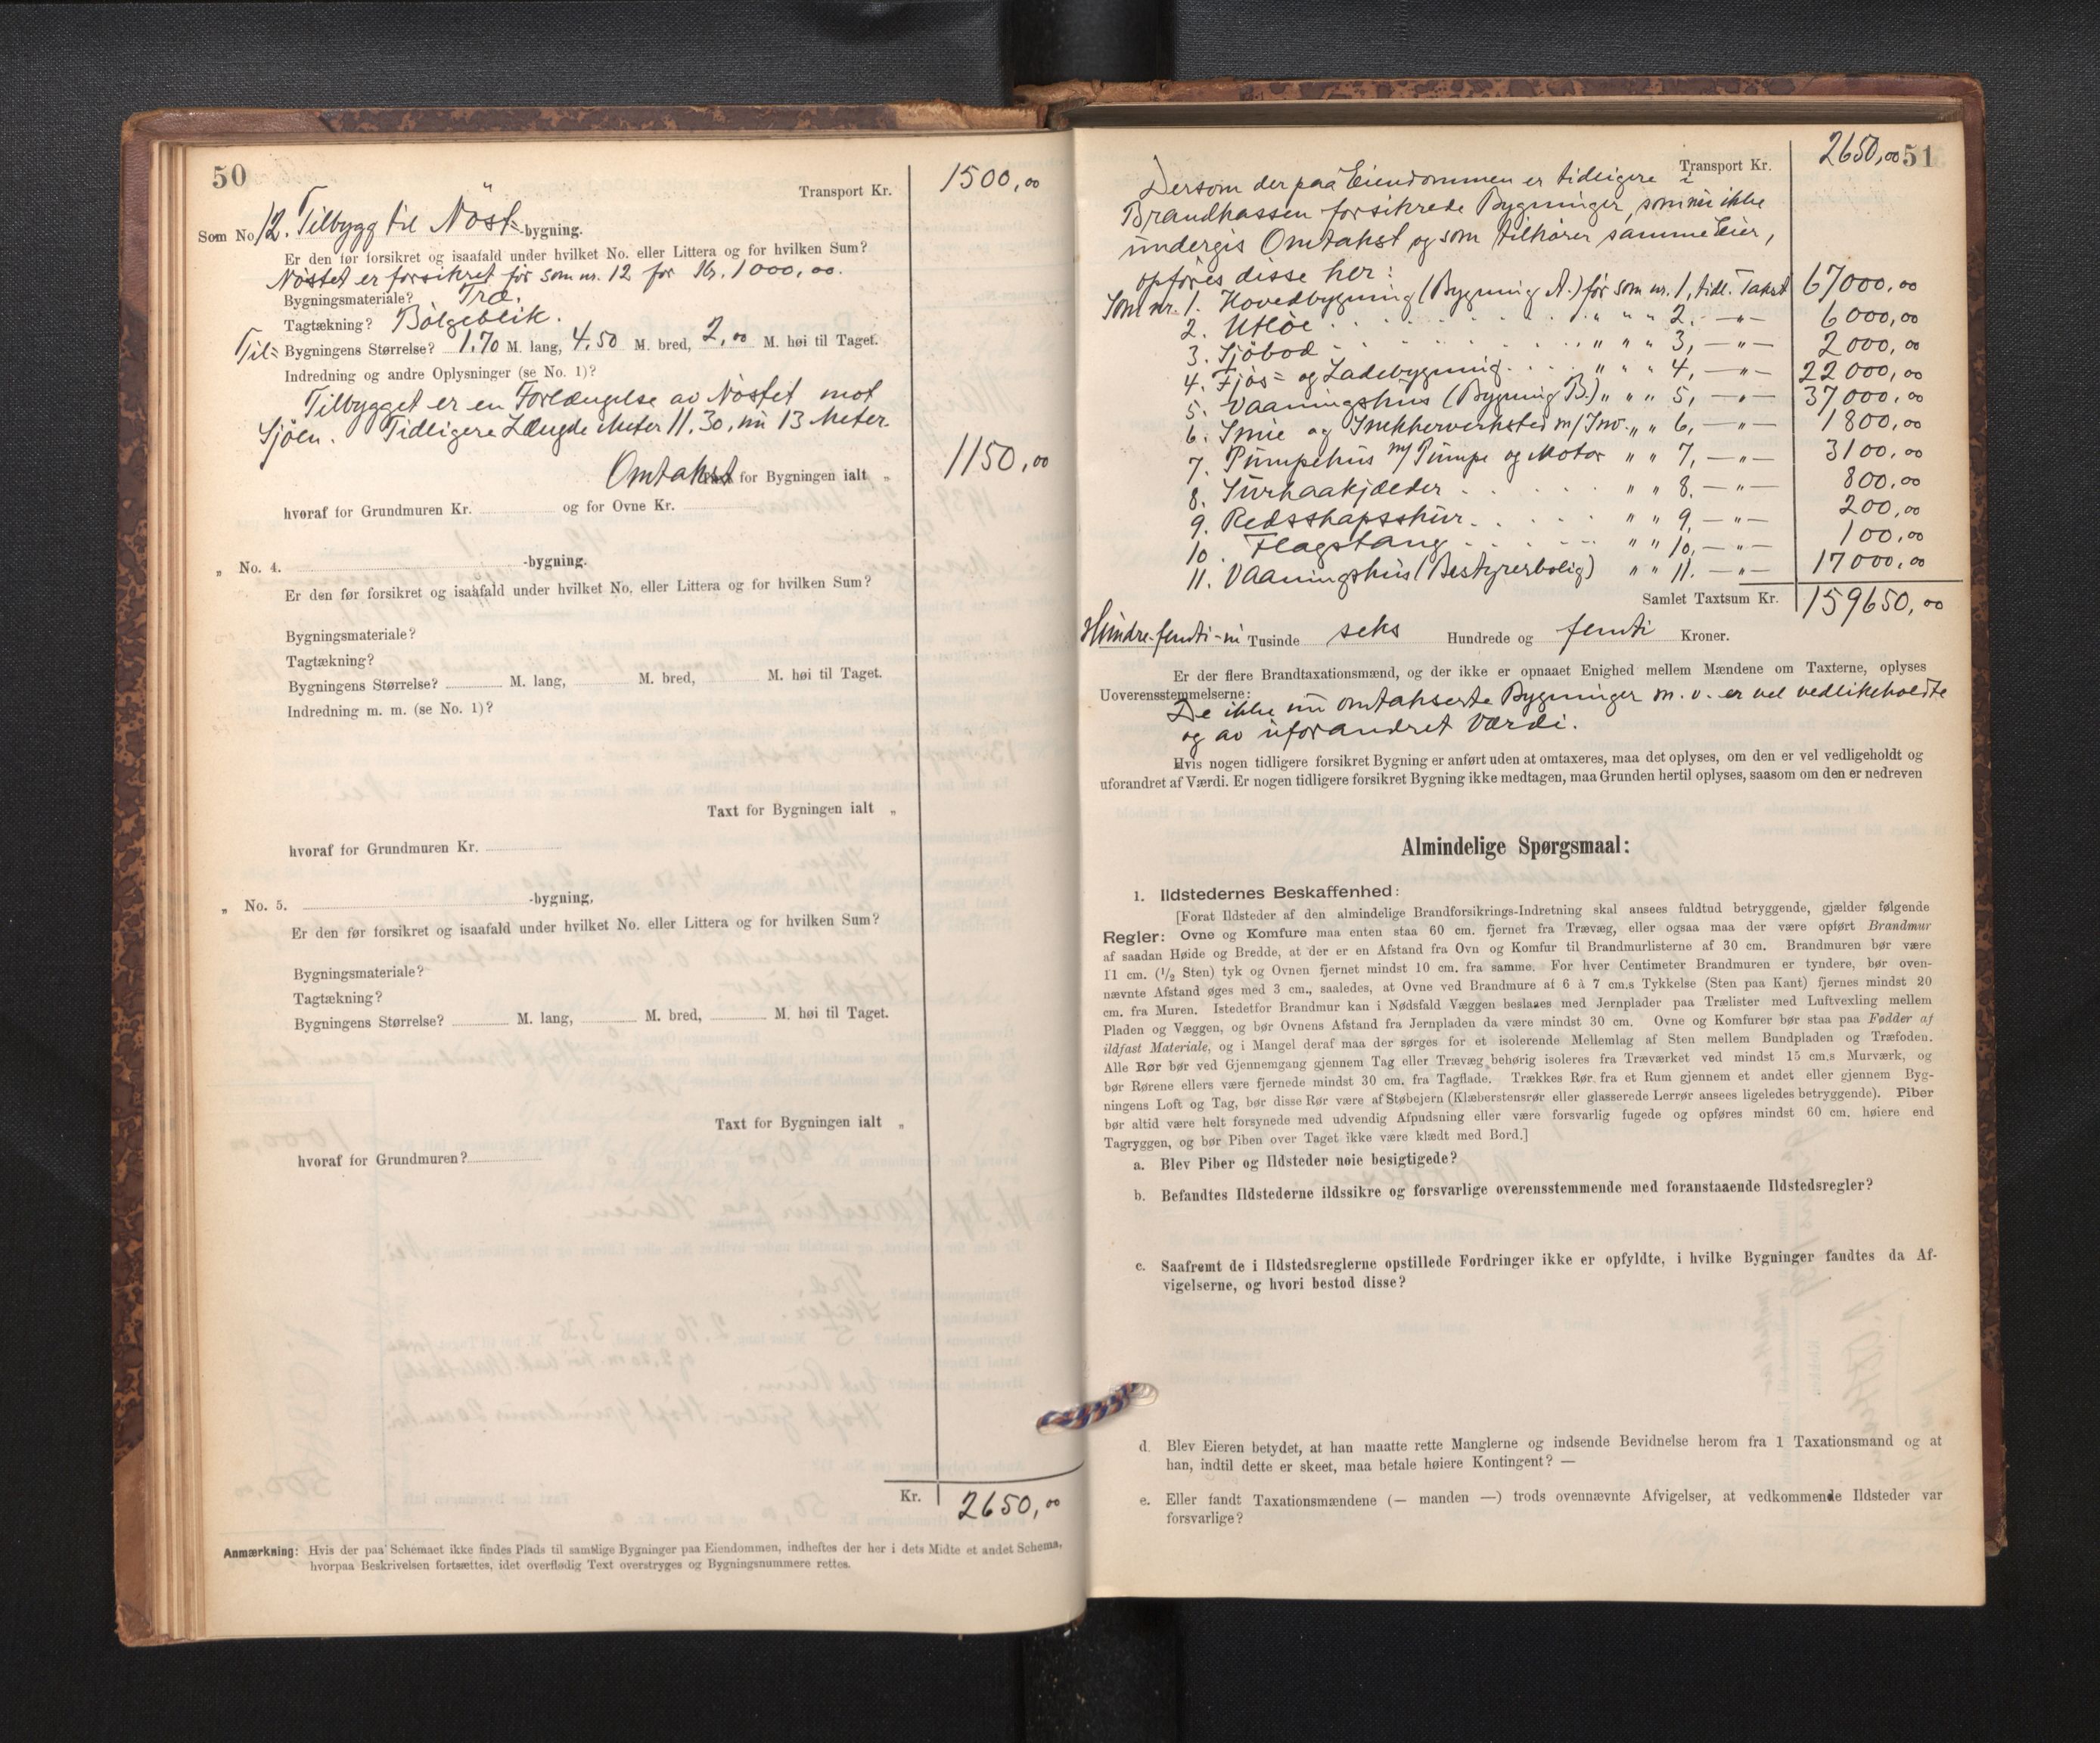 50
Transport Kr. 1500,00
Som No 12. Tilbygg til Nöst- -bygning.
Er den før forsikret og isaafald under hvilket No. eller Littera og for hvilken Sum?
Nöstet er forsikret för som nr. 12 for Kr. 1000,00.
Bygningsmateriale? Træ.
Tagtækning? Bölgeblik.
Til= Bygningens Størrelse? 1,70 M. lang, 4,50 M. bred, 2,00 M. høi til Taget.
Indredning og andre Oplysninger (se No. 1)?
Tilbygget er en Forlængelse av Nöstet mot
Sjöen. Tidligere Længde Meter 11,30, nu 13 Meter
Omtakst for Bygningen ialt „ 1150,00
hvoraf for Grundmuren Kr. og for Ovne Kr.
„ No. 4. -bygning.
Er den før forsikret og isaafald under hvilket No. eller Littera og for hvilken Sum?
Bygningsmateriale?
Tagtækning?
Bygningens Størrelse? M. lang, M. bred, M. høi til Taget.
Indredning m. m. (se No. 1)?
Taxt for Bygningen ialt „
hvoraf for Grundmuren Kr.
„ No. 5. -bygning,
Er den før forsikret og isaafald under hvilket No. eller Littera og for hvilken Sum?
Bygningsmateriale?
Tagtækning?
Bygningens Størrelse? M. lang, M. bred, M. høi til Taget.
Taxt for Bygningen ialt „
hvoraf for Grundmuren?
Kr. 2650,00
Anmærkning: Hvis der paa Schemaet ikke findes Plads til samtlige Bygninger paa Eiendommen, indheftes der her i dets Midte et andet Schema,
hvorpaa Beskrivelsen fortsættes, idet overflødig Text overstryges og Bygningsnummere rettes.
51
Transport Kr. 2650,00
Dersom der paa Eiendommen er tidligere i
Brandkassen forsikrede Bygninger, som nu ikke
undergis Omtakst og som tilhører samme Eier,
opføres disse her:
Som nr. 1. Hovedbygning (Bygning A.) för som nr. 1, tidl. Takst 67000,00
2. Utlöe . . . „ „ 2. —„— 6000,00
3. Sjöbod . . . „ „ „ 3, —„— 2000,00
4. Fjös= og Ladebygning . . . „ „ „ 4, —„— 22000,00
5. Vaaningshus (Bygning B.) „ „ „ 5, —„— 37000,00
6. Smie og Snekkerverksted m/Inv. „ „ 6, —„— 1800,00
7. Pumpehus m/Pumpe og Motor „ „ 7, —„— 3100,00
8. Surhaakjælder . . . „ „ 8. —„— 800,00
9. Redskapsskur . . . „ „ 9, —„— 200,00
10. Flagstang . . . „ „ 10, —„— 100,00
11. Vaaningshus (Bestyrerbolig) „ „ 11. —„— 17000,00
Samlet Taxtsum Kr. 159650,00
Hundre-femti-ni Tusinde seks Hundrede og femti Kroner.
Er der flere Brandtaxationsmænd, og der ikke er opnaaet Enighed mellem Mændene om Taxterne, oplyses
Uoverensstemmelserne:
De ikke nu omtakserte Bygninger m. v. er vel vedlikeholdte
og av uforandret Værdi.
Hvis nogen tidligere forsikret Bygning er anført uden at omtaxeres, maa det oplyses, om den er vel vedligeholdt og
uforandret af Værdi. Er nogen tidligere forsikret Bygning ikke medtagen, maa Grunden hertil oplyses, saasom om den er nedreven
Almindelige Spørgsmaal:
1. Ildstedernes Beskaffenhed:
[Forat Ildsteder af den almindelige Brandforsikrings-Indretning skal ansees fuldtud betryggende, gjælder følgende
Regler: Ovne og Komfure maa enten staa 60 cm. fjernet fra Trævæg, eller ogsaa maa der være opført Brandmur
af saadan Høide og Bredde, at der er en Afstand fra Ovn og Komfur til Brandmurlisterne af 30 cm. Brandmuren bør være
11 cm. (1/2 Sten) tyk og Ovnen fjernet mindst 10 cm. fra samme. For hver Centimeter Brandmuren er tyndere, bør oven-
nævnte Afstand øges med 3 cm., saaledes, at Ovne ved Brandmure af 6 à 7 cm.s Tykkelse (Sten paa Kant) fjernes mindst 20
cm. fra Muren. Istedetfor Brandmur kan i Nødsfald Væggen beslaaes med Jernplader paa Trælister med Luftvexling mellem
Pladen og Væggen, og bør Ovnens Afstand fra Jernpladen da være mindst 30 cm. Ovne og Komfurer bør staa paa Fødder af
ildfast Materiale, og i Mangel deraf maa der sørges for et isolerende Mellemlag af Sten mellem Bundpladen og Træfoden.
Alle Rør bør ved Gjennemgang gjennem Tag eller Trævæg behørig isoleres fra Træværket ved mindst 15 cm.s Murværk, og
bør Rørene ellers være fjernede mindst 30 cm. fra Tagflade. Trækkes Rør fra et Rum gjennem et andet eller gjennem Byg-
ningens Loft og Tag, bør disse Rør være af Støbejern (Klæberstensrør eller glasserede Lerrør ansees ligeledes betryggende). Piber
bør altid være helt forsynede med udvendig Afpudsning eller være forsvarlig fugede og opføres mindst 60 cm. høiere end
Tagryggen, og bør Piben over Taget ikke være klædt med Bord.]
a. Blev Piber og Ildsteder nøie besigtigede?
b. Befandtes Ildstederne ildssikre og forsvarlige overensstemmende med foranstaaende Ildstedsregler?
c. Saafremt de i Ildstedsreglerne opstillede Fordringer ikke er opfyldte, i hvilke Bygninger fandtes da Af-
vigelserne, og hvori bestod disse?
d. Blev Eieren betydet, at han maatte rette Manglerne og indsende Bevidnelse herom fra 1 Taxationsmand og at
han, indtil dette er skeet, maa betale høiere Kontingent? —
e. Eller fandt Taxationsmændene (— manden —) trods ovennævnte Afvigelser, at vedkommende Ildsteder var
forsvarlige?